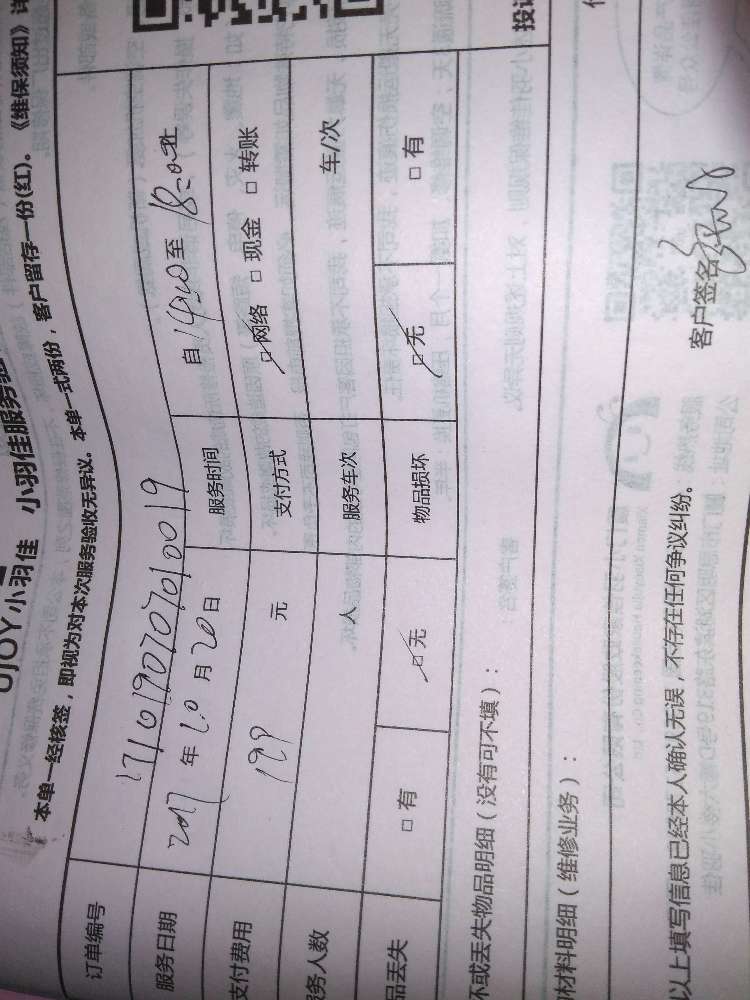 UJOY小羽佳 小羽佳服务验
本单一经核签，即视为对本次服务验收无异议。本单一式两份，客户留存一份(红)。《维保须知》详
订单编号 1710190707010019
服务日期 2017年10月20日 服务时间 自14:40至18:0止
支付费用 199 元 支付方式 ☑网络 □现金 □转账
务人数 人 服务车次 车/次
品丢失 □有 ☑无 物品损坏 ☑无 □有
坏或丢失物品明细（没有可不填）：
材料明细（维修业务）：
以上填写信息已经本人确认无误，不存在任何争议纠纷。 客户签名
投诉